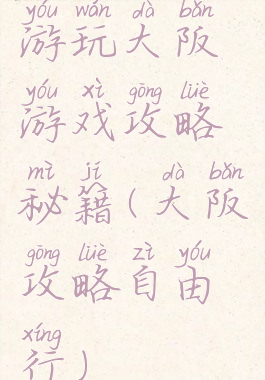 yóu wán dà bǎn
游玩大阪
yóu xì gōng lüè
游戏攻略
mì jí dà bǎn
秘籍(大阪
gōng lüè zì yóu
攻略自由
xíng
行)